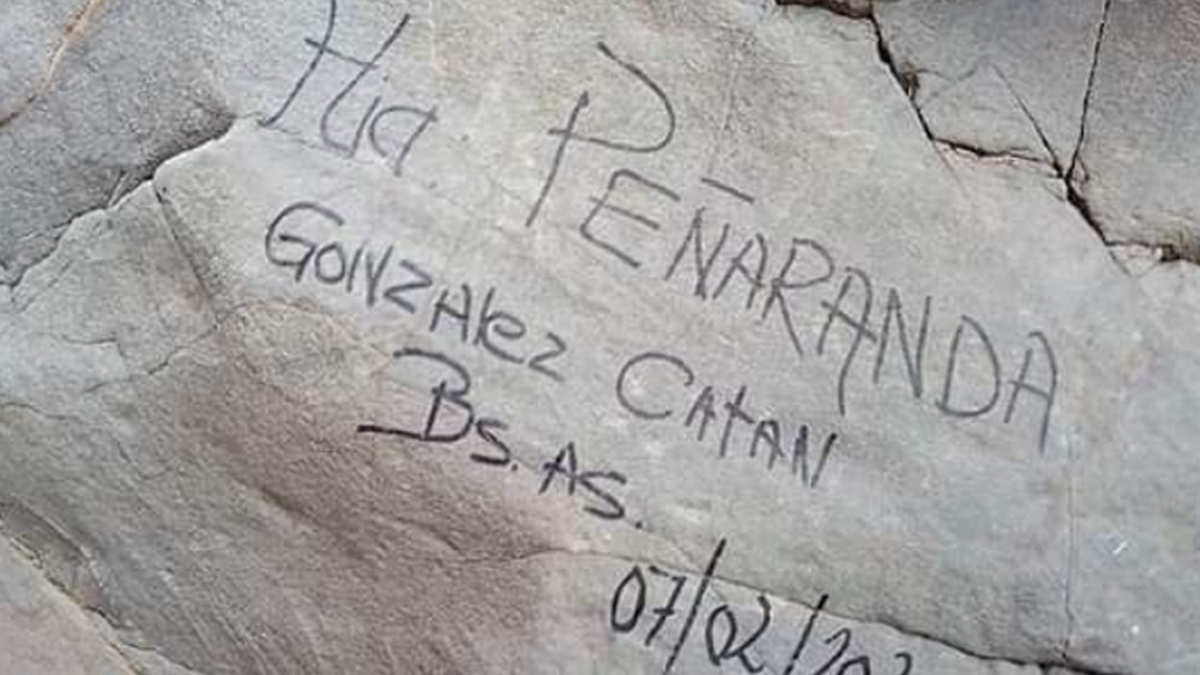 Flia. PEÑARANDA
GONZAlez CAtAN
Bs. As.
07/02/202